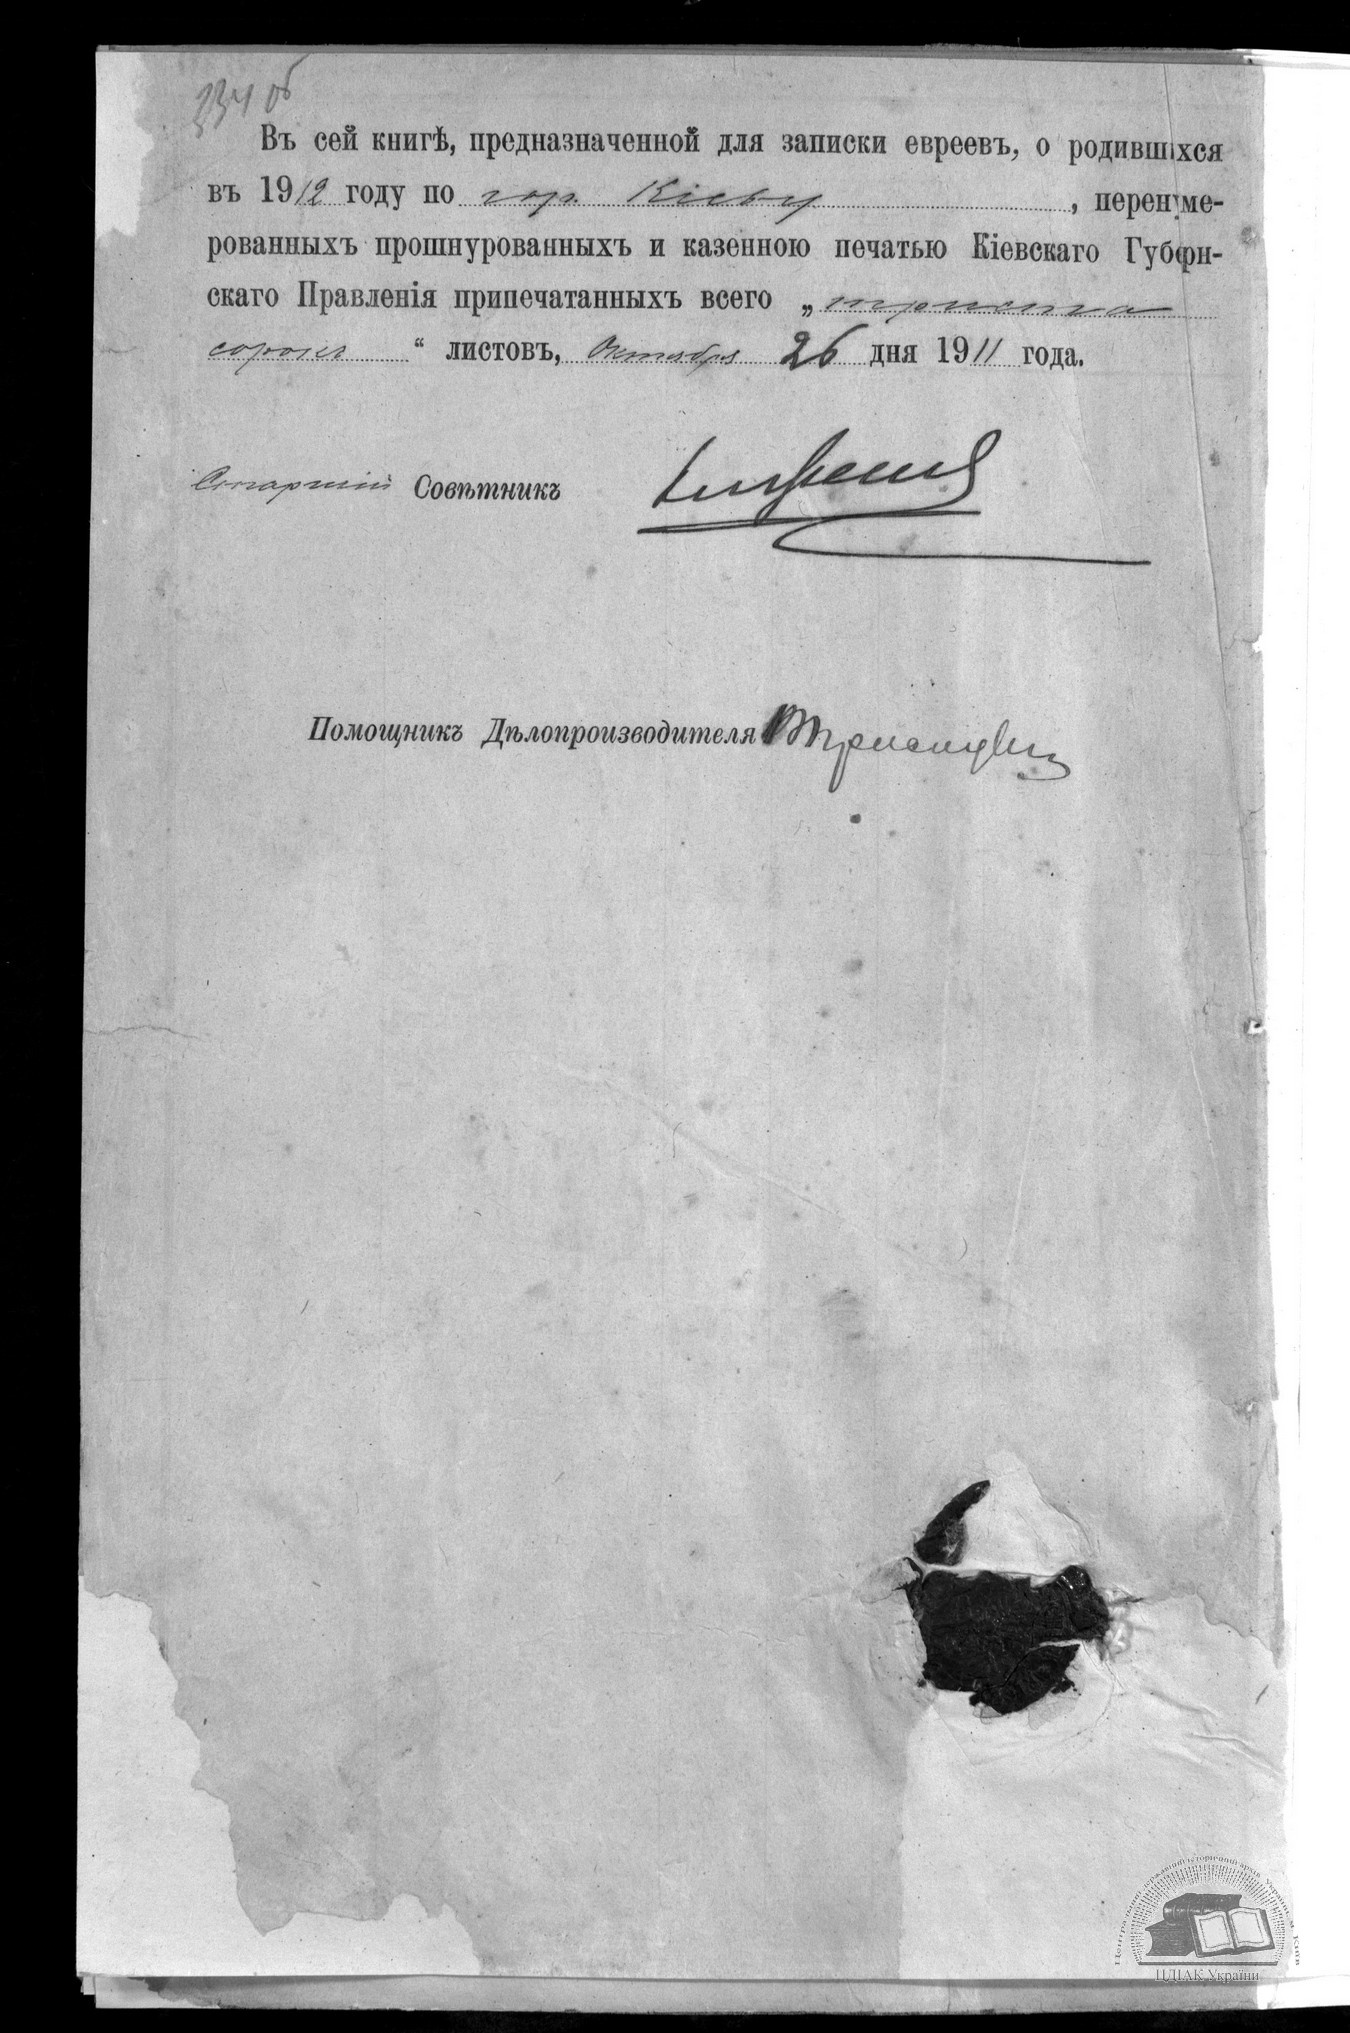 Въ сей книгѣ, предназначенной для записки евреевъ, о родившихся
въ 1912 году по гор. Кіеву, перенуме-
рованныхъ прошнурованныхъ и казенною печатью Кіевскаго Губерн-
скаго Правленія припечатанныхъ всего „триста
сорокъ“ листовъ, Октября 26 дня 1911 года.
Старшій Совѣтникъ
Помощникъ Дѣлопроизводителя
Центральний державний історичний архів України, м. Київ
ЦДІАК України